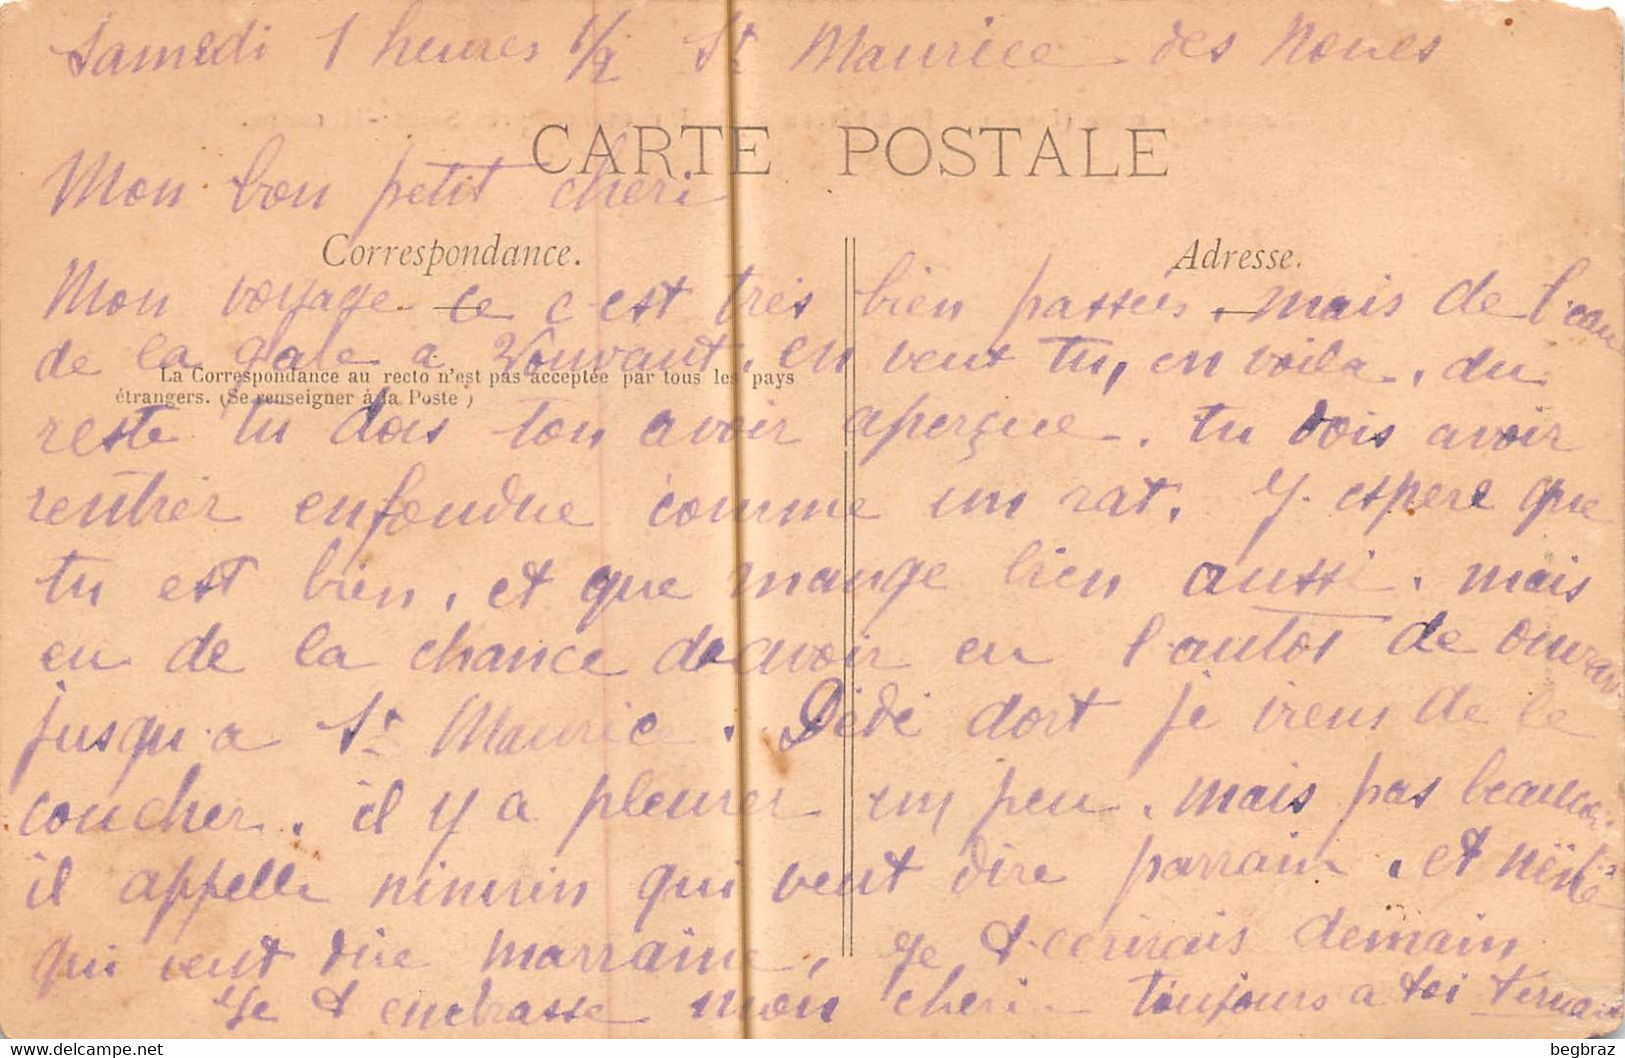 Samedi 1 heures 1/2 St Maurice des Noues
CARTE POSTALE
Mon bon petit cheri
Correspondance. Adresse.
Mon voyage ce c-est très bien passées, mais de l'eau
de la gare a Vouvant, en veut tu, en voila, du
La Correspondance au recto n'est pas acceptée par tous les pays
étrangers. (Se renseigner à la Poste)
reste tu dois ton avoir aperçue. tu dois avoir
rentrer enfondue comme un rat. J. espere que
tu est bien, et que mange bien aussi. mais
eu de la chance de avoir eu l'autot de
jusqu'a St Maurice. Dédé dort je viens de le
coucher. il y a pleurer un peu. mais pas
il appelle ninnin qui veut dire parrain. et
qui veut dire marraine, Je t-ecrirais demain
Je t embrasse mon cheri - toujours a toi
begbraz